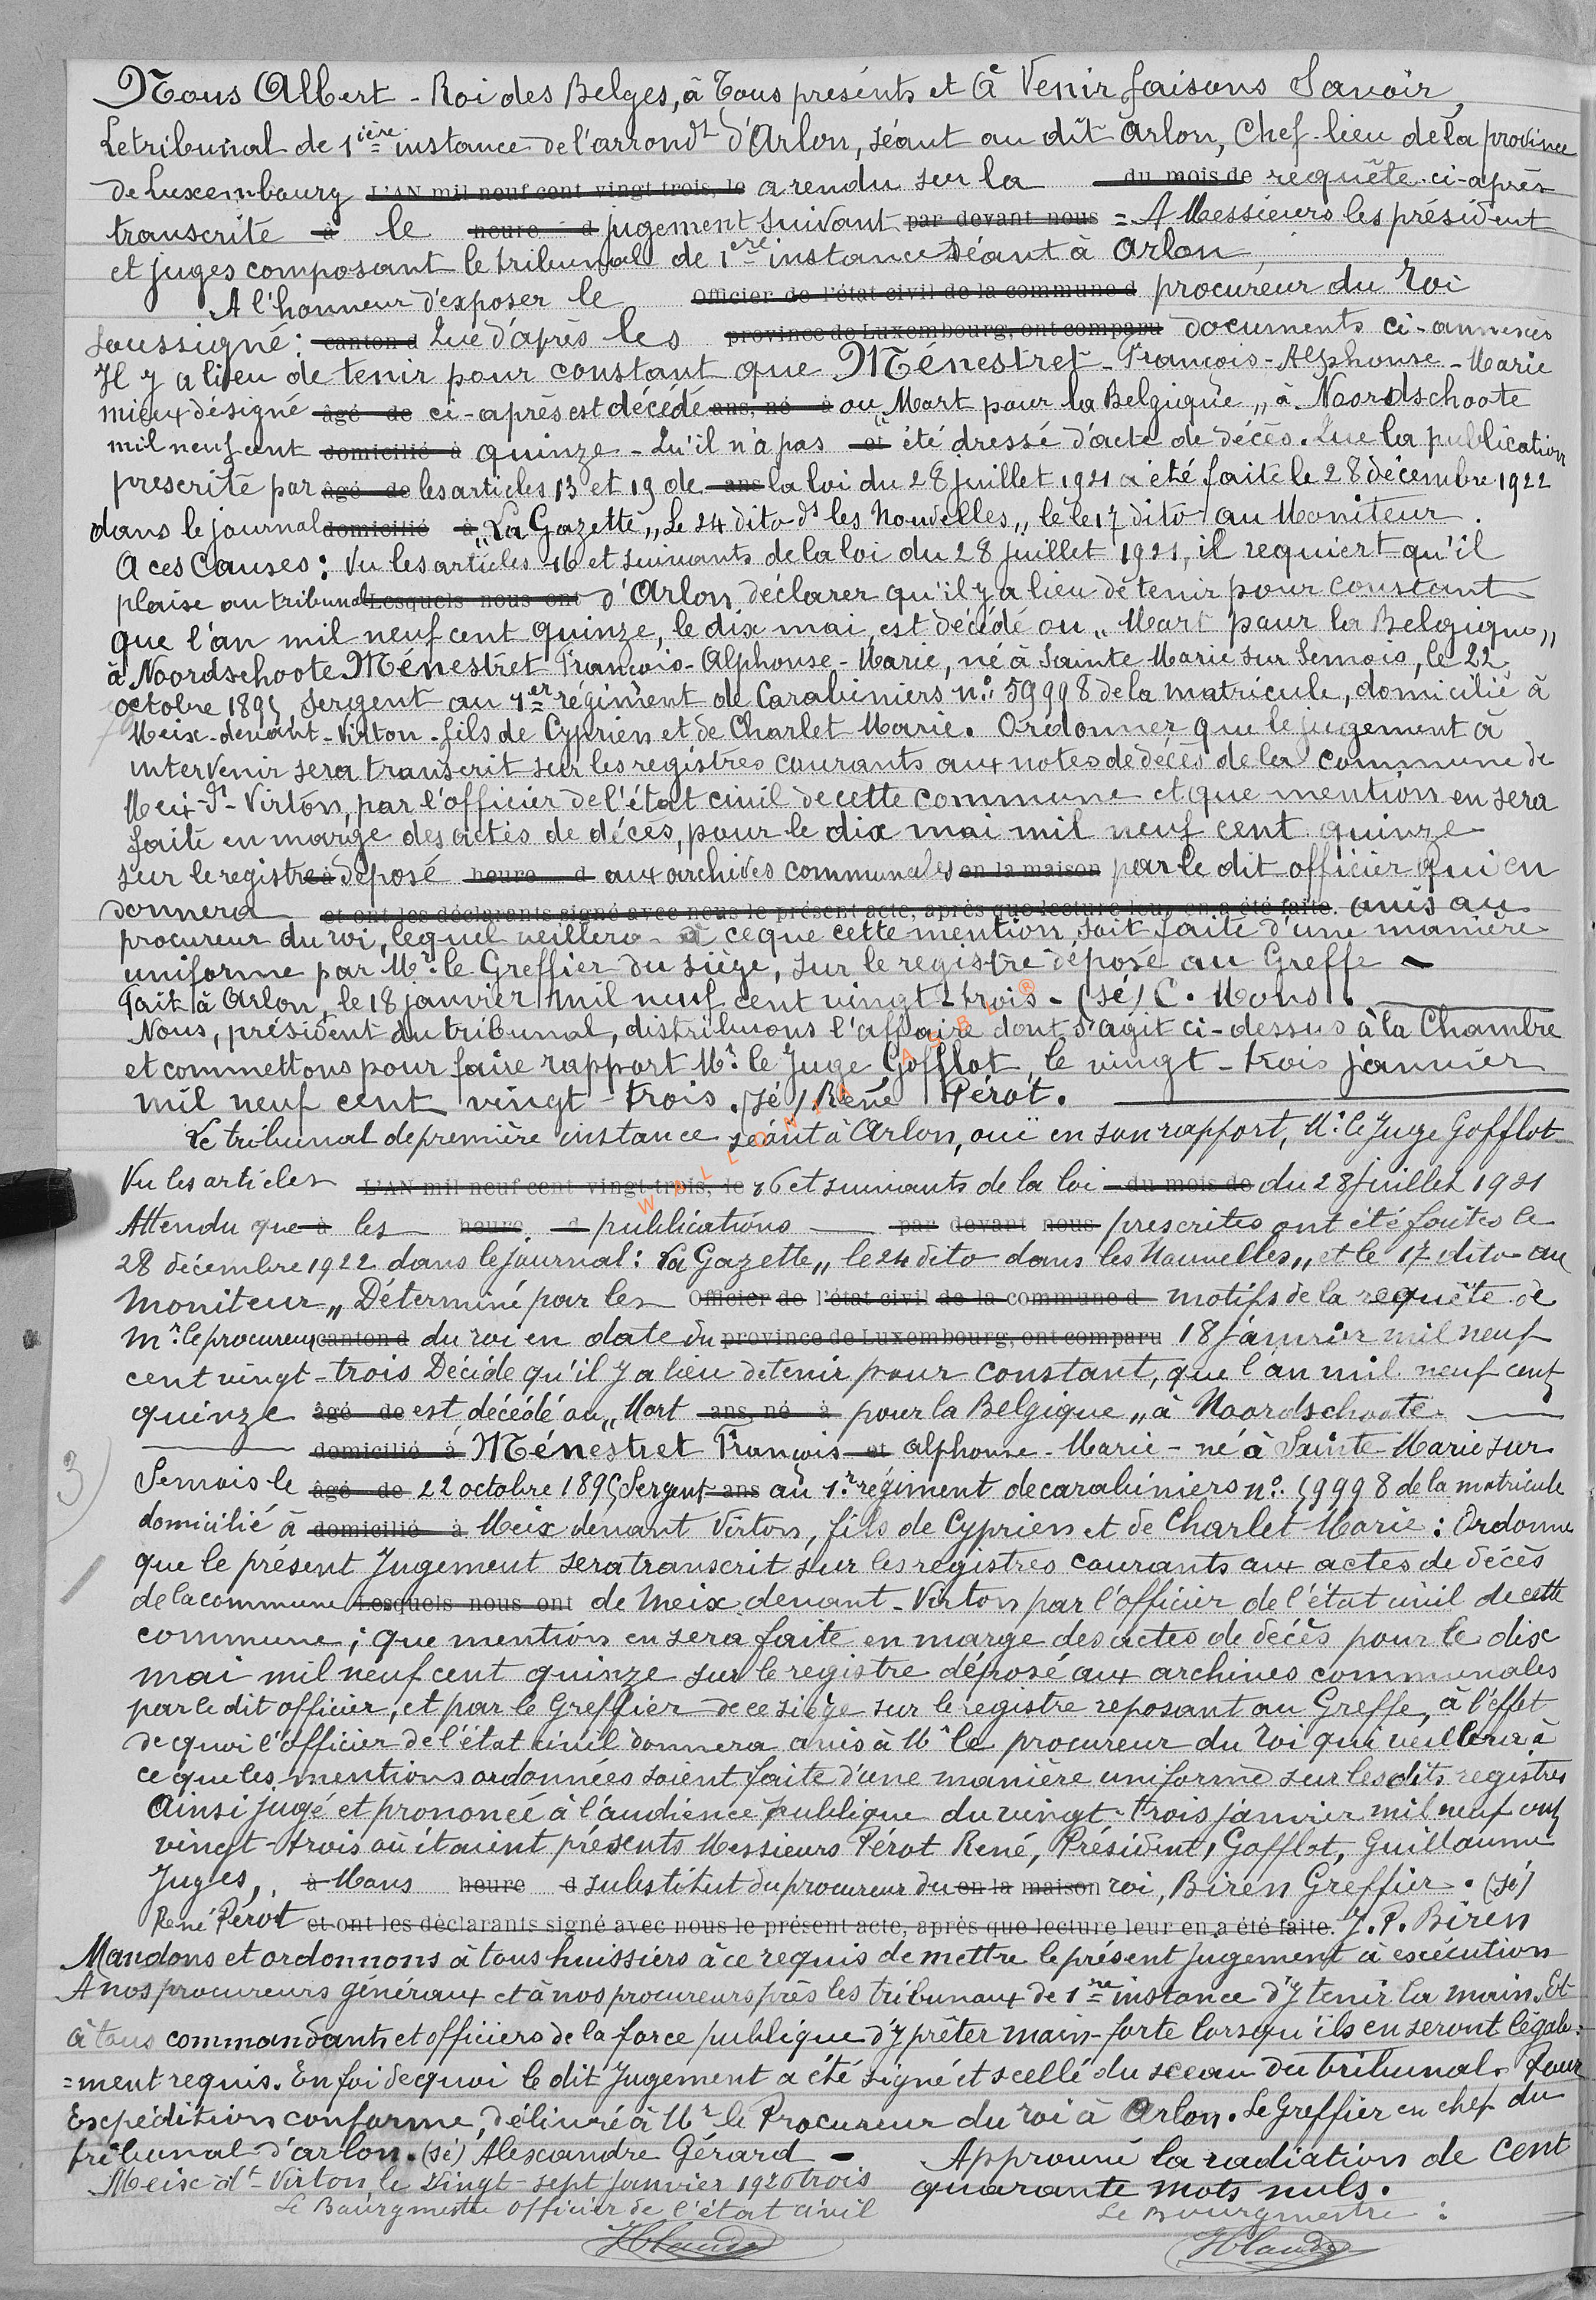 Nous Albert - Roi des Belges, à Tous présents et à Venir faisons Savoir,
Le tribunal de 1ière instance de l'arrondt d'Arlon, séant au dît Arlon, Chef-lieu de la province
de Luxembourg L'AN mil neuf cent vingt-trois, le a rendu sur la du mois de requête ci-après
transcrite à le heure d jugement suivant par devant nous = A Messieurs les président
et juges composant le tribunal de 1ère instance séant à Arlon,
A l'honneur d'exposer le Officier de l'état civil de la commune d procureur du roi
soussigné : canton d Que d'après les province de Luxembourg, ont comparu documents ci-annexés
Il y a lieu de tenir pour constant que Ménestret - François - Alphonse - Marie
mieux désigné âgé de ci-après est décédé ans, né à ou „Mort pour la Belgique„ à Noordschoote
mil neuf cent domicilié à quinze - Qu'il n'a pas et été dressé d'acte de décès. Que la publication
prescrite par âgé de les articles 13 et 19 de ans la loi du 28 juillet 1921 a été faite le 28 décembre 1922
dans le journal domicilié à „La Gazette„ Le 24 dito ds les Nouvelles„ le le 17 dito au Moniteur.
A ces Causes : Vu les articles 16 et suivants de la loi du 28 juillet 1921, il requiert qu'il
plaise au tribunal Lesquels nous ont d'Arlon déclarer qu'il y a lieu de tenir pour constant
que l'an mil neuf cent quinze, le dix mai, est décédé ou „Mort pour la Belgique„
à Noordschoote Ménestret François-Alphonse-Marie, né à Sainte Marie sur Semois, le 22
octobre 1895 sergent au 1er régiment de Carabiniers no: 59998 de la matricule, domicilié à
Meix-devant-Virton - fils de Cyprien et de Charlet Marie. Ordonner que le jugement à
intervenir sera transcrit sur les registres courants aux notes de décès de la commune de
Meix-dt-Virton, par l'officier de l'état civil de cette commune et que mention en sera
faite en marge des actes de décès, pour le dix mai mil neuf cent quinze
sur le registre à déposé heure d aux archives communales en la maison par le dit officier qui en
donnera et ont les déclarants signé avec nous le présent acte, après que lecture leur en a été faite. avis au
procureur du roi, lequel veillera à ce que cette mention soit faite d'une manière
uniforme par Mr. le Greffier du siège, sur le registre déposé au Greffe -
Fait à Arlon, le 18 janvier mil neuf cent vingt-trois - (sé) C. Mons.
Nous, président du tribunal, distribuons l'affaire dont s'agit ci-dessus à la Chambre
et commettons pour faire rapport Mr. le Juge Gofflot, le vingt-trois janvier
mil neuf cent vingt-trois. (sé) René Pérot.
Le tribunal de première instance séant à Arlon, ouï en son rapport, Mr. le Juge Gofflot
Vu les articles L'AN mil neuf cent vingt-trois, le 16 et suivants de la loi du mois de du 28 juillet 1921
Attendu que à les heure d publications par devant nous prescrites ont été faites le
28 décembre 1922 dans le journal : La Gazette„ le 24 dito dans les Nouvelles„ et le 17 dito au
Moniteur„ Déterminé par les Officier de l'état civil de la commune d motifs de la requête de
Mr. le procureur canton d du roi en date du province de Luxembourg, ont comparu 18 janvier mil neuf
cent vingt-trois Décide qu'il y a lieu de tenir pour constant, que l'an mil neuf cent
quinze âgé de est décédé ou „Mort ans, né à pour la Belgique„ à Noordschoote
domicilié à Ménestret François et Alphonse-Marie - né à Sainte Marie sur
Semois le âgé de 22 octobre 1895 Sergent ans au 1r. régiment de carabiniers no. 59998 de la matricule
domicilié à domicilié à Meix devant Virton, fils de Cyprien et de Charlet Marie : Ordonne
que le présent Jugement sera transcrit sur les registres courants aux actes de décès
de la commune Lesquels nous ont de Meix devant-Virton par l'officier de l'état civil de cette
commune ; que mention en sera faite en marge des actes de décès pour le dix
mai mil neuf cent quinze sur le registre déposé aux archives communales
par le dit officier, et par le Greffier de ce siège sur le registre reposant au Greffe, à l'effet
de quoi l'officier de l'état civil donnera avis à Mr le procureur du Roi qui veillera à
ce que les mentions ordonnées soient faite d'une manière uniforme sur les dits registres
Ainsi jugé et prononcé à l'audience publique du vingt-trois janvier mil neuf cent
vingt-trois où étaient présents Messieurs Pérot René, Président, Gofflot, Guillaume
Juges, à Mons heure d substitut du procureur du en la maison roi, Biren Greffier. (sé)
René Pérot et ont les déclarants signé avec nous le présent acte, après que lecture leur en a été faite. J. P. Biren
Mandons et ordonnons à tous huissiers à ce requis de mettre le présent jugement à exécution
A nos procureurs généraux et à nos procureurs près les tribunaux de 1re instance d'y tenir la main. Et
à tous commandants et officiers de la force publique d'y prêter main-forte lorsqu'ils en seront légale=
=ment requis. En foi de quoi le dit Jugement a été signé et scellé du sceau du tribunal. Pour
Expédition conforme, délivré à Mr le Procureur du roi à Arlon. Le Greffier en chef du
tribunal d'arlon. (sé) Alexandre Gérard - Approuvé la radiation de cent
Meix-dt-Virton, le vingt-sept janvier 1920 trois quarante mots nuls.
Le Bourgmestre Officier de l'état civil Le Bourgmestre :
3)
WALLONIA ASBL ®